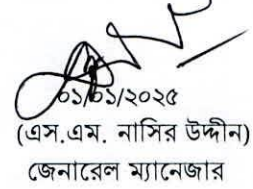 ০১/০১/২০২৫
(এস.এম. নাসির উদ্দীন)
জেনারেল ম্যানেজার